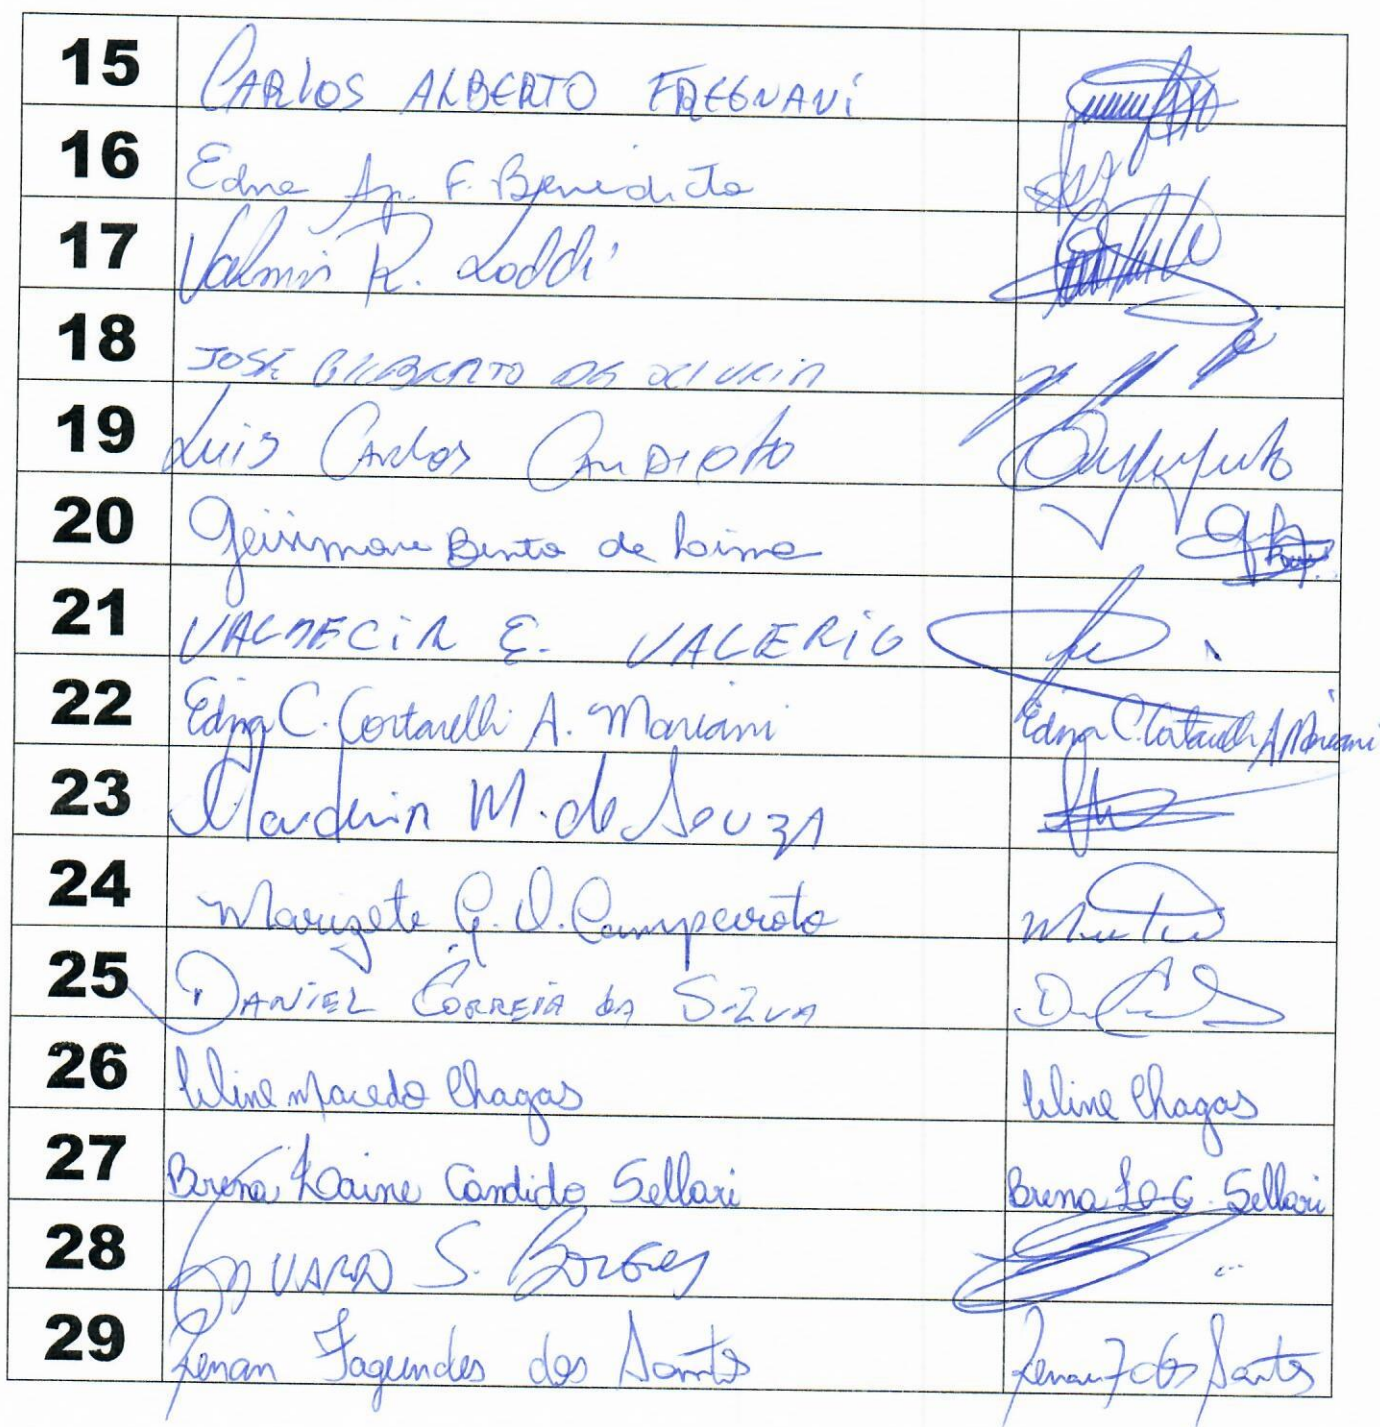 15 CARLOS ALBERTO FREGNANI
16 Edna Ap. F. Benedicta
17 Valmir R. Loddi
18 JOSÉ GILBERTO DE OLIVEIR
19 Luis Carlos CANDIOTO
20 Geisimare Bento de Lima
21 VALDECIR E. VALERIO
22 Edna C. Cortarelli A. Mariani Edna C. Cortarelli A Mariani
23 M. de Souza
24 Marizete G. D. Camperoto
25 DANIEL CORREIA DA SILVA
26 Macedo Chagas Chagas
27 Brena Laine Candido Sellari Brena L. C. Sellari
28 S. Borges
29 Renan Fagundes dos Santos Renan F dos Santos